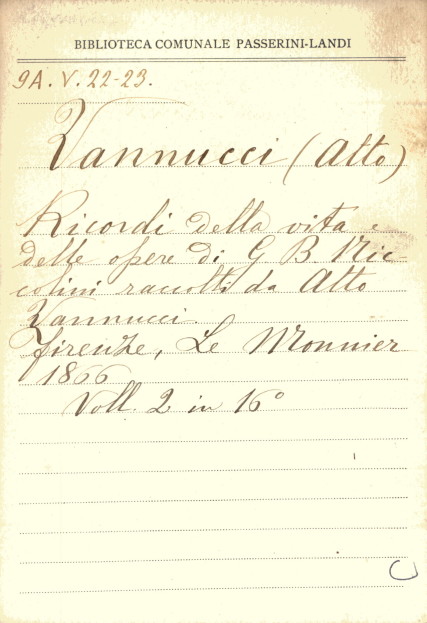 BIBLIOTECA COMUNALE PASSERINI-LANDI
9A. V. 22-23.
Vannucci (Atto)
Ricordi della vita e
delle opere di G B Nic-
colini raccolti da Atto
Vannucci.
Firenze, Le Monnier
1866
Voll. 2 in 16°